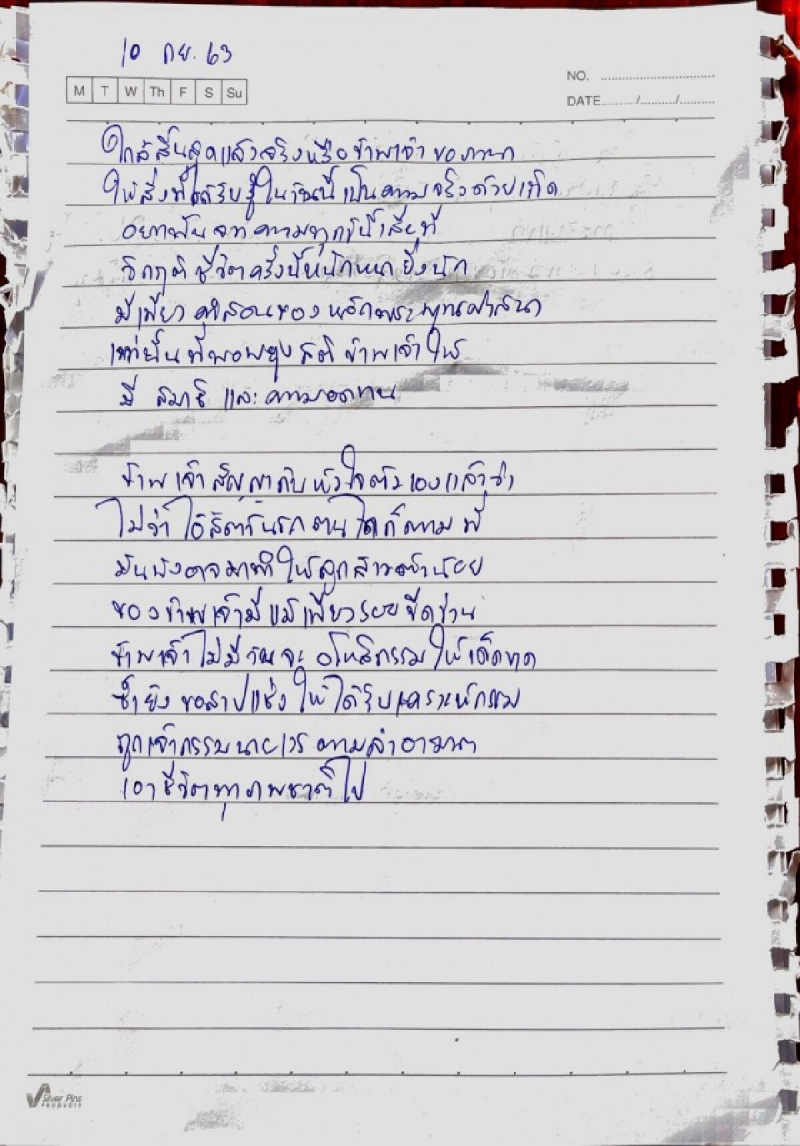 10 กย. 63
M T W Th F S Su
NO.
DATE / /
ใกล้สิ้นสุดแล้วจริงหรือ ข้าพเจ้า ขอภาวนา
ให้สิ่งที่ได้รับรู้ในวันนี้ เป็นความจริงด้วยเถิด
อยากพ้นจากความทุกข์นี้เสียที
วิกฤติชีวิตครั้งนี้หนักหนายิ่งนัก
มีเพียงคำสอนของ หลักพระพุทธศาสนา
เท่านั้นที่พอพยุง สติ ข้าพเจ้าให้
มี สมาธิ และ ความอดทน
ข้าพเจ้าสัญญากับหัวใจตัวเองแล้วว่า
ไม่ว่า ไอ้สัตว์นรกตนใดก็ตาม ที่
มันบังอาจมาทำให้ลูกสาวตัวน้อย
ของข้าพเจ้ามีแม้เพียงรอยขีดข่วน
ข้าพเจ้าไม่มีวันจะ อโหสิกรรมให้เด็ดขาด
ซ้ำยัง ขอสาปแช่ง ให้ได้รับเคราะห์กรรม
ถูกเจ้ากรรมนายเวร ตามล่าอาฆาต
เอาชีวิตทุกภพชาติไป
Silver Pins
PRODUCTS